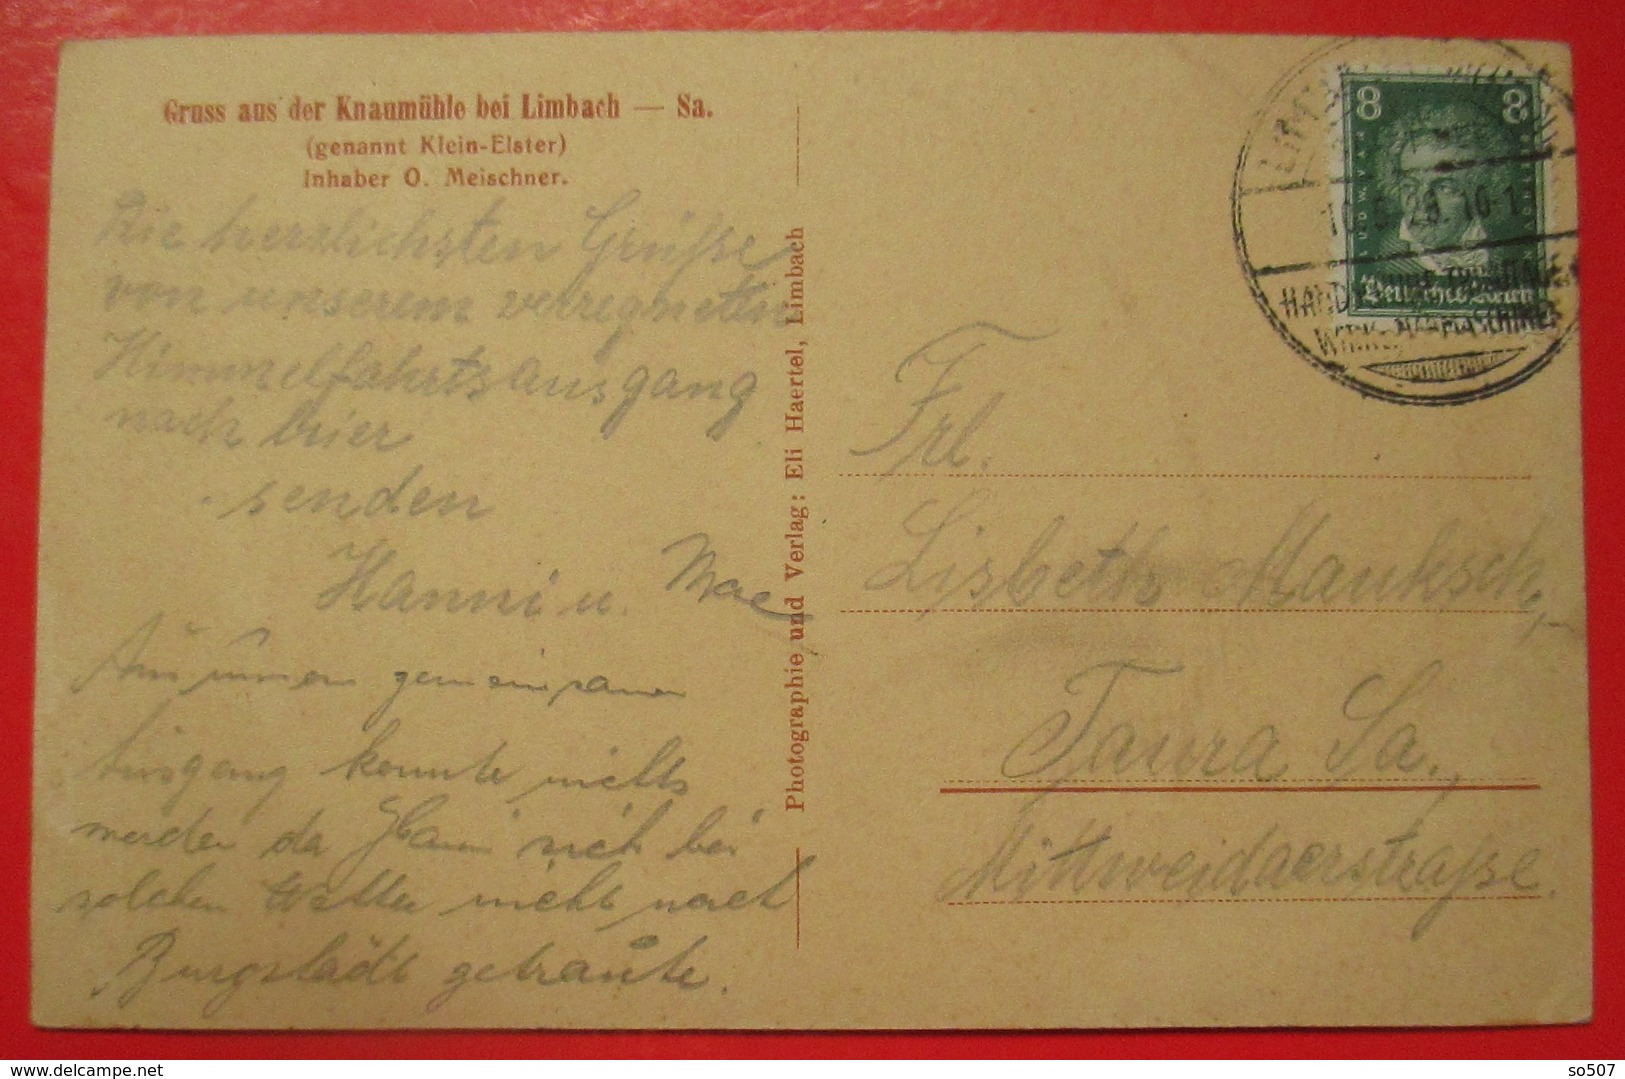 Gruss aus der Knaumühle bei Limbach — Sa.
(genannt Klein-Elster)
Inhaber O. Meischner.
Die herzlichsten Grüße
von unserem verregneten
Himmelfahrtsausgang
nach hier
senden
Hanni u. Mae
Aus unserem gemeinsamen
Ausgang konnte nichts
werden da Hanni sich bei
solchem Wetter nicht nach
Burgstädt getraute.
Photographie und Verlag: Eli Haertel, Limbach
8 8
Deutsches Reich
Frl.
Lisbeth Mauksch,
Taura Sa.,
Mittweidaerstraße.
delcampe.net
so507